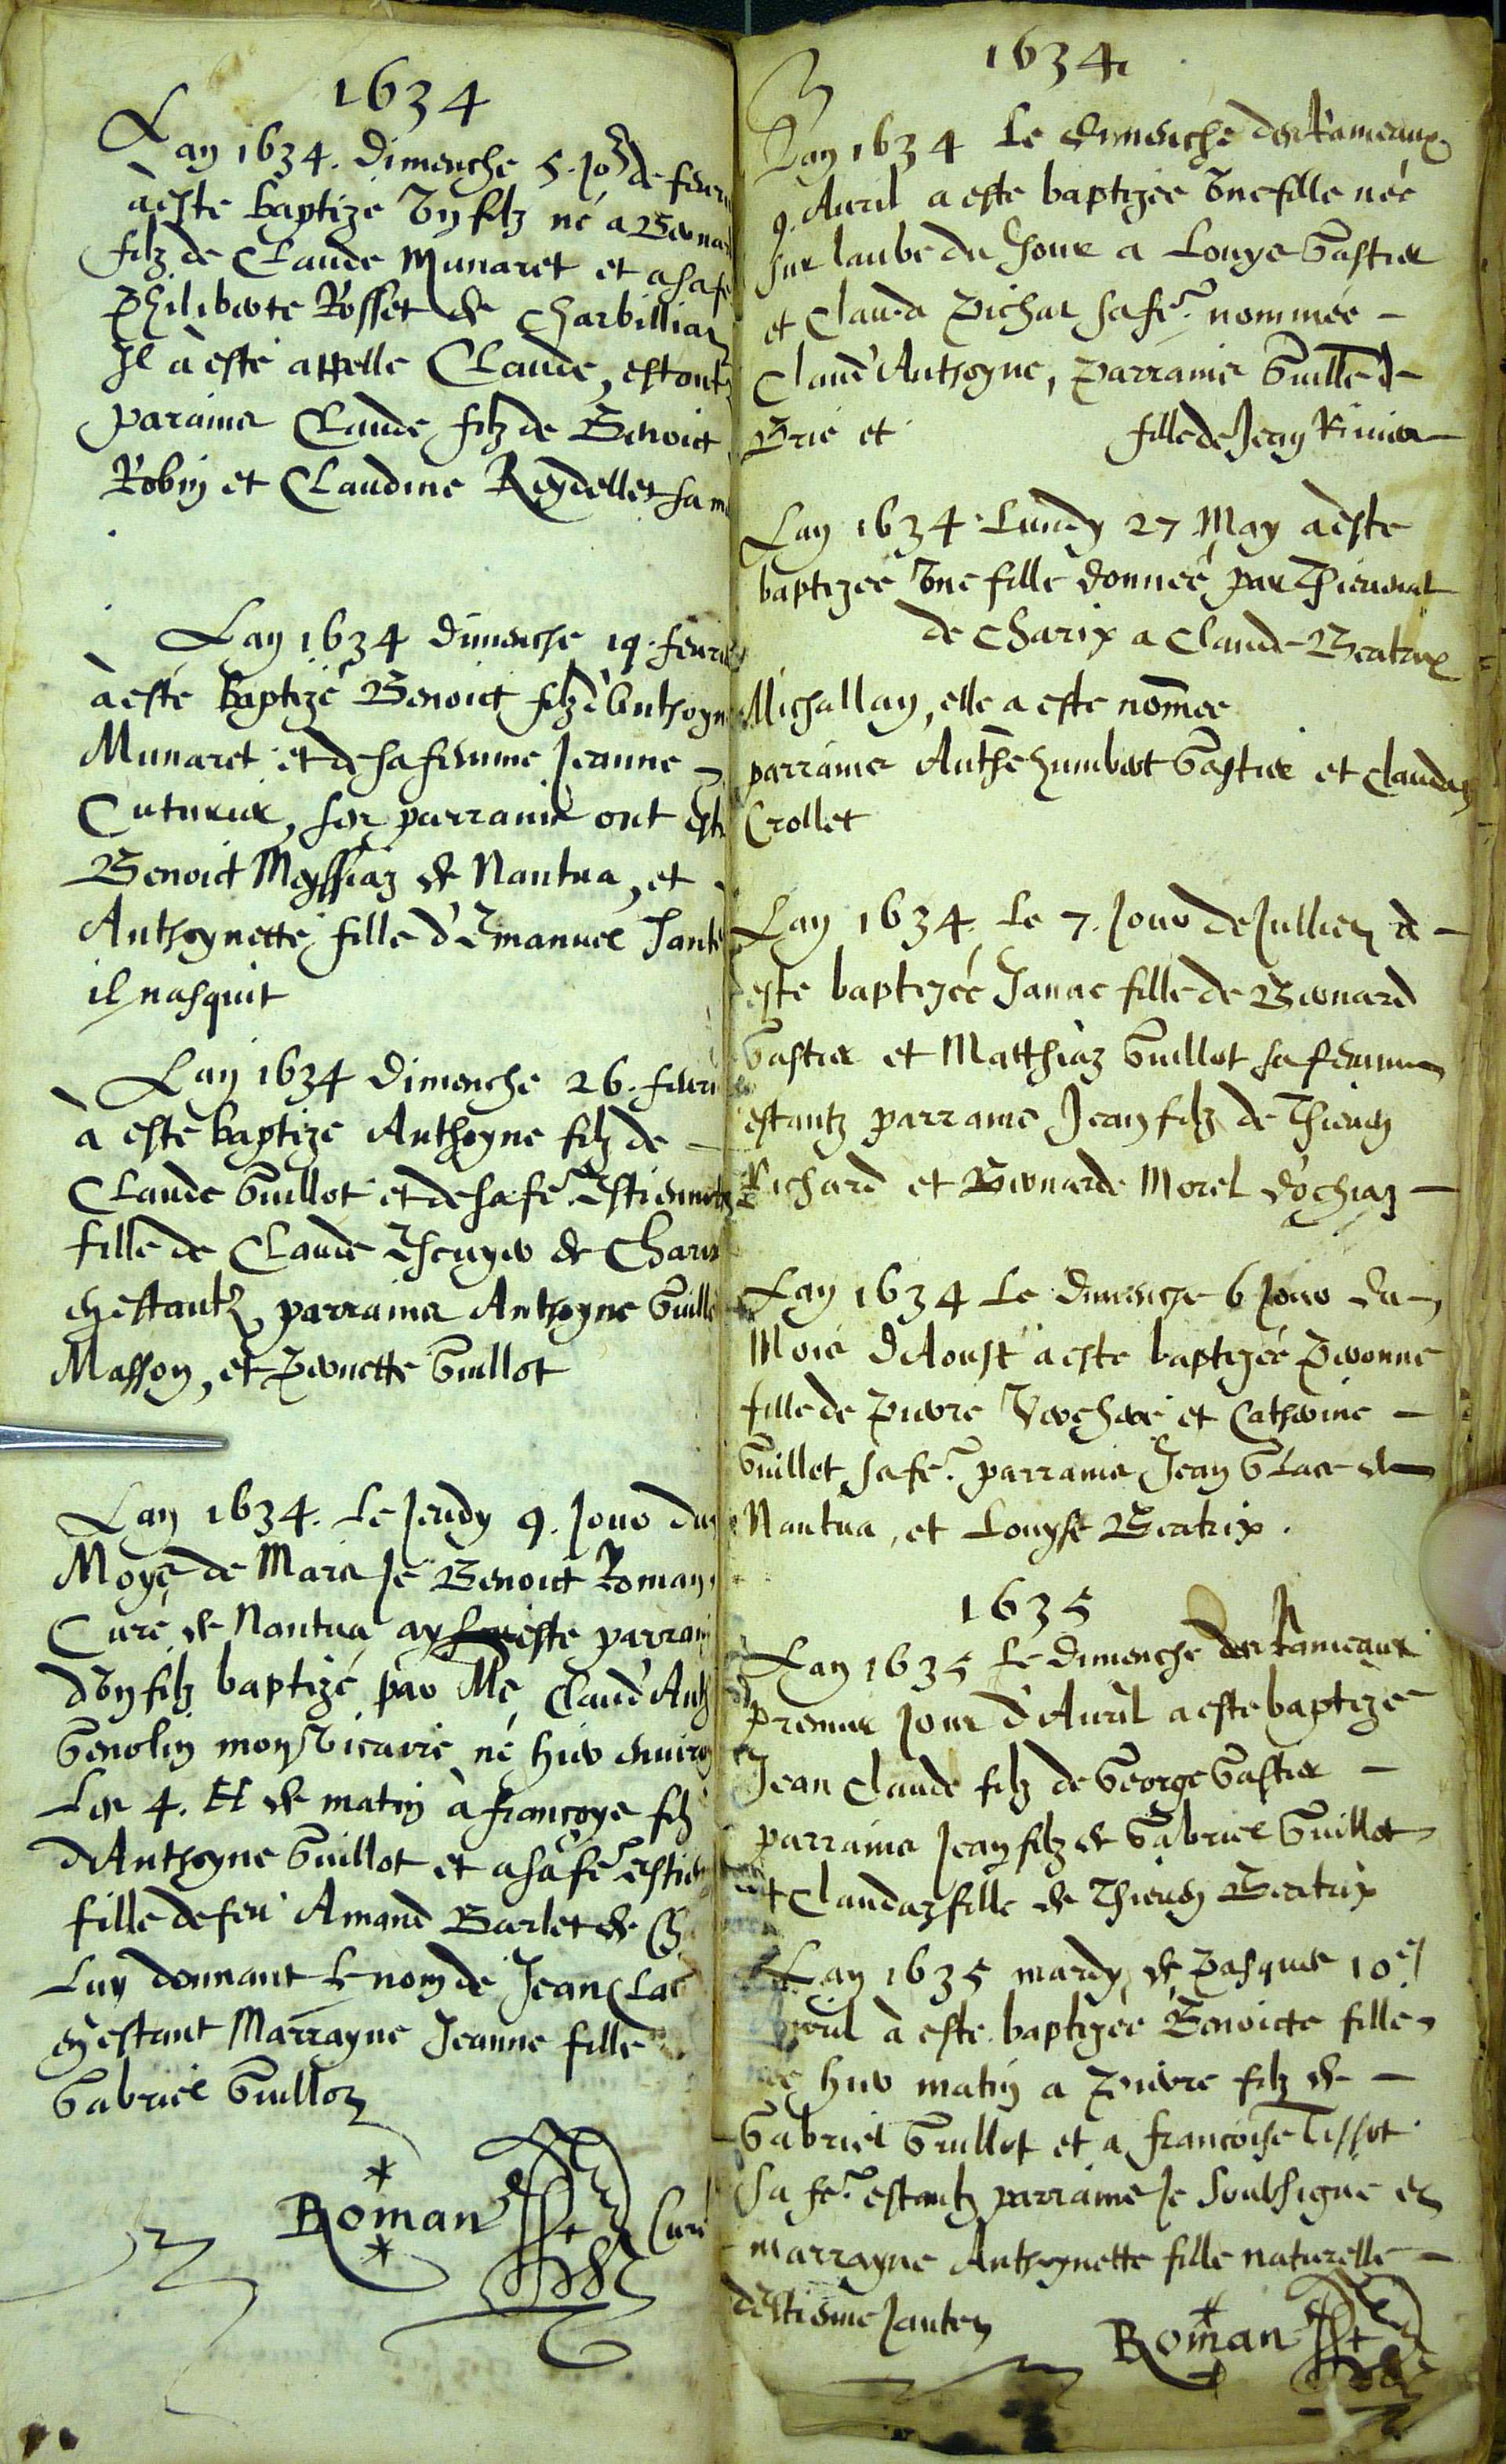 1634
Lan 1634. Dimenche 5. Jor de
à esté baptizé Vn filz né a
filz de Claude Munaret et a sa
Philiberte Rosset de Charbillian
Il à esté appelle Claude, estantz
parains Claude filz de Benoict
Robin et Claudine Reydellet sa
Lan 1634 dimenche 19. feurier
à esté baptizé Benoict filz d'Anthoyne
Munaret et de sa femme Jeanne
Cuturier, ses parrains ont esté
Benoict Meyssiaz de Nantua, et
Anthoynette fille d'Emanuel
il nasquit
Lan 1634 dimenche 26.
à esté baptizé Anthoyne filz de
Claude Guillot et de sa fe. Estiennette
fille de Claude de
en estantz parrains Anthoyne
Masson, et Pernette Guillot
Lan 1634. Le Jeudy 9. Jour du
Moys de Mars Je Benoict Roman
Curé de Nantua ay esté parrain
d'Vn filz baptizé par Me Claud'
Genolin mon Vicaire né hier enuiron
Les 4. H de matin à françoys filz
d'Anthoyne Guillot et a sa fe.
fille de feu Amand Barlet de
Luy donnant Le nom de Jean
en estant Marrayne Jeanne fille
Gabriel Guillot
Roman Curé
1634
Lan 1634 Le dimenche des Rameaux
9. Auril a esté baptizée Vne fille née
sur laube du Jour a Louys Gastier
et Clauda Pichat sa fe. nommée
Claud' Anthoyne, parrains Guille de
Brie et fille de Jean
Lan 1634 Lundy 27 May à esté
baptizée Vne fille donnée par
de Charix a Claude Beatrix
Michallan, elle a esté nommée
parrains Anthe humbert Gastier et Claudaz
Crollet
Lan 1634. Le 7. Jour de Jullien à
esté baptizée Janne fille de Bernard
Gastier et Matthiaz Guillot sa femme
estantz parrains Jean filz de Thieuen
Richard et Bernarde Morel d'ochiaz
Lan 1634 Le dimenche 6 Jour du
Mois d'Aoust à esté baptizée Peronne
fille de Pierre et Catherine
Guillot sa fe. parrains Jean de
Nantua, et Louyse Beatrix.
1635
Lan 1635 Le dimenche des Rameaux
premier Jour d'Auril a esté baptizé
Jean Claude filz de George Gastier
parrains Jean filz de Gabriel Guillot
et Claudaz fille de Thieuen Beatrix
Lan 1635 mardy de Pasques 10e
Auril à esté baptizée Benoicte fille
née hier matin a Pierre filz de
Gabriel Guillot et a francoise Tissot
sa fe. estantz parrains Je Soubsigne et
marrayne Anthoynette fille naturelle
d'Estienne
Roman